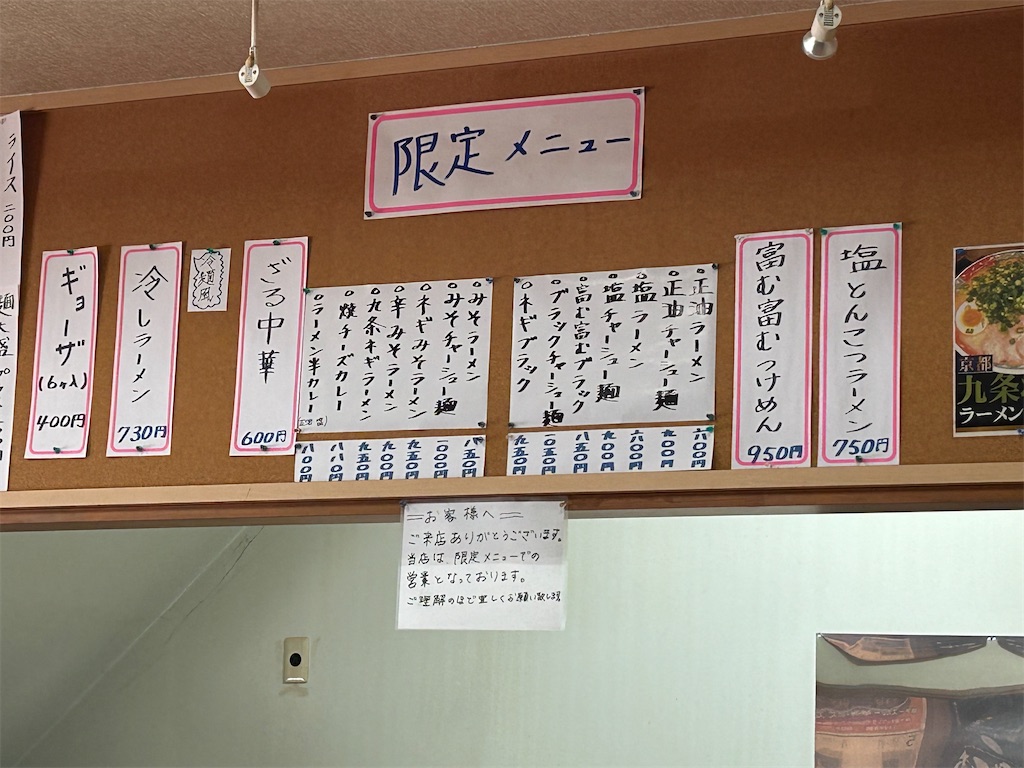 限定メニュー
塩とんこつラーメン
750円
富む富むつけめん
950円
○正油ラーメン
○正油チャーシュー麺
○塩ラーメン
○塩チャーシュー麺
○富む富むブラック
○ブラックチャーシュー麺
○ネギブラック
六〇〇円
九〇〇円
六〇〇円
九〇〇円
七五〇円
一〇五〇円
九五〇円
○みそラーメン
○みそチャーシュー麺
○ネギみそラーメン
○辛みそラーメン
○九条ネギラーメン
○焼チーズカレー
○ラーメン半カレー
一〇〇〇円
九五〇円
八八〇円
ざる中華
600円
冷麺風
冷しラーメン
730円
ギョーザ
(6ヶ入)
400円
ライス 二〇〇円
京都
九条
ラーメン
=お客様へ=
ご来店ありがとうございます。
当店は、限定メニューでの
営業となっております。
ご理解のほど宜しくお願い致します